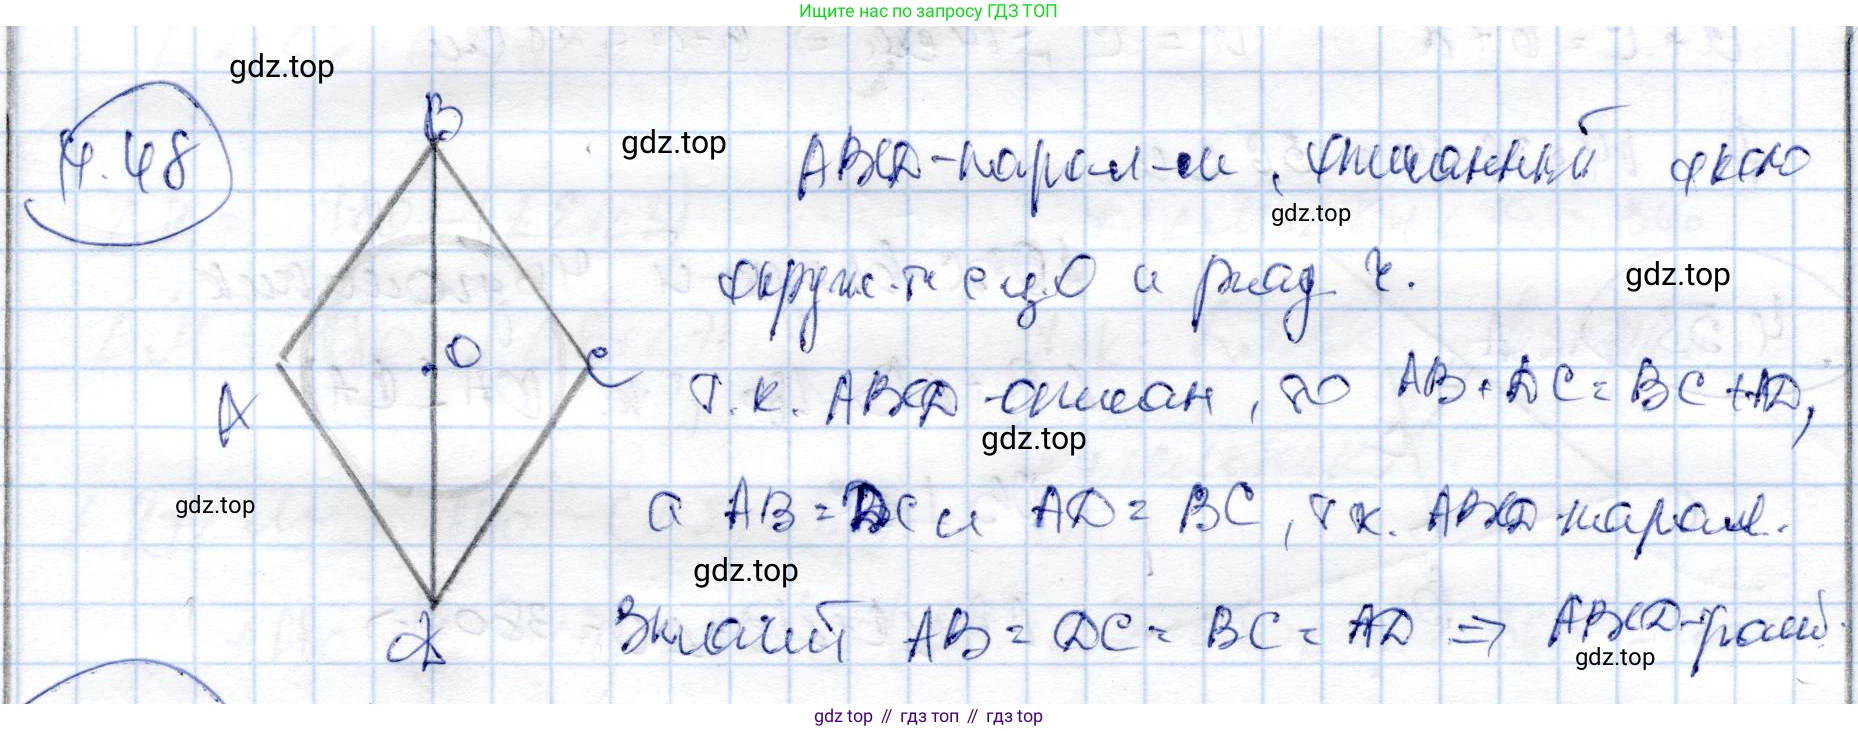 Ищите нас по запросу ГДЗ ТОП
gdz.top
4.48
B
gdz.top
ABCD-парал-м, описанный около
gdz.top
окруж-ти с ц. O и рад r.
gdz.top
O
C
A
т.к. ABCD-описан, то AB+DC=BC+AD,
gdz.top
gdz.top
а AB=DC и AD=BC, т.к. ABCD-парал.
gdz.top
Значит AB=DC=BC=AD ⇒ ABCD-ромб.
D
gdz.top
gdz top // гдз топ // гдз top